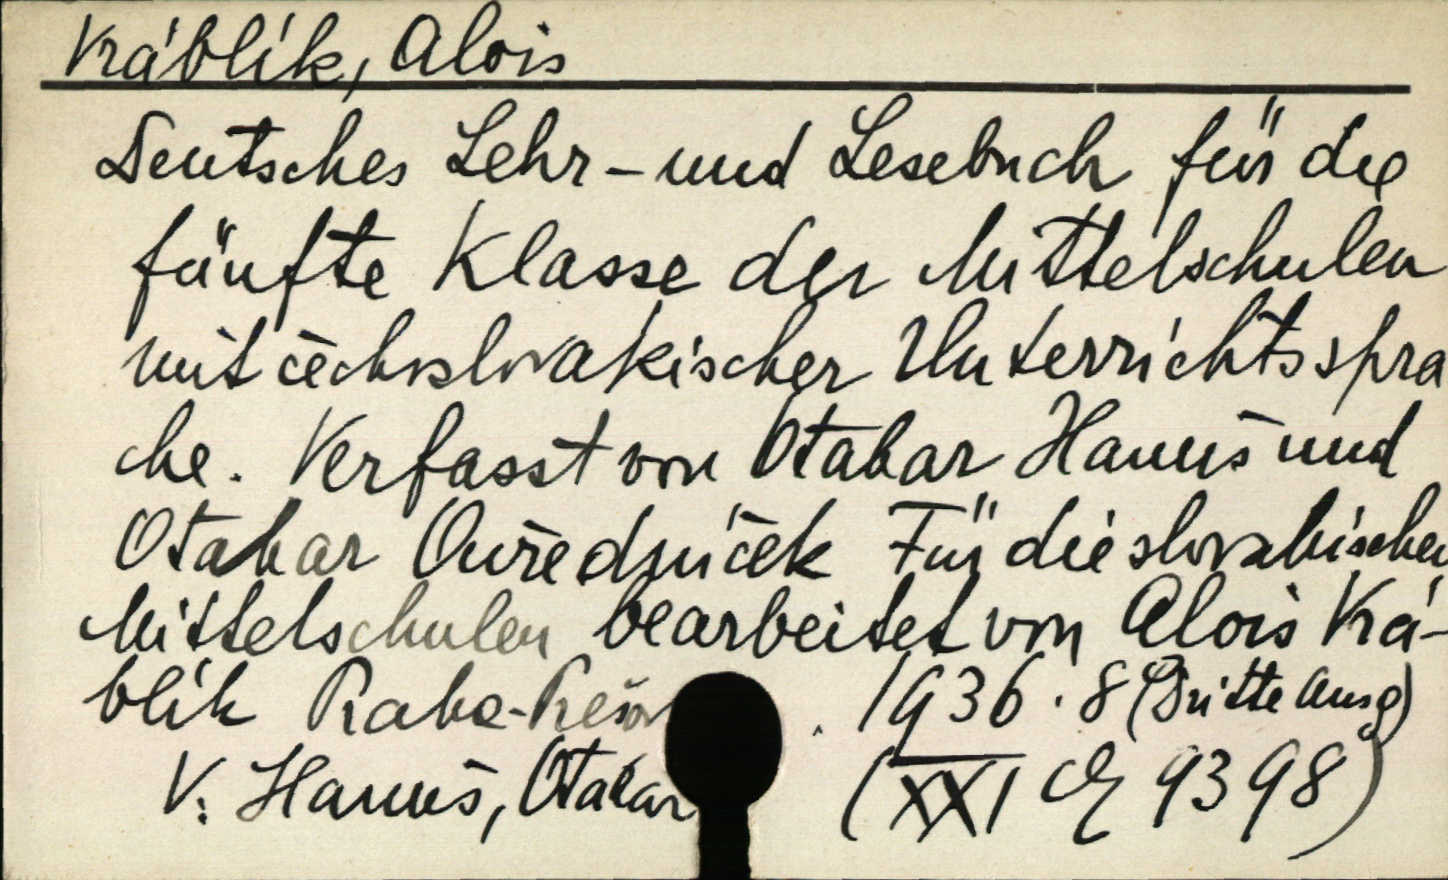 Kráblík, Alois
Deutsches Lehr- und Lesebuch für die
fünfte Klasse der Mittelschulen
mit čechoslovakischer Unterrichtsspra
che. Verfasst von Otakar Hanuš und
Otakar Ouředníček Für die slovakischen
Mittelschulen bearbeitet von Alois Krá-
blík Praha-Prešov . 1936. 8 (Dritte Ausg)
V: Hanuš, Otakar (XXI 9398)